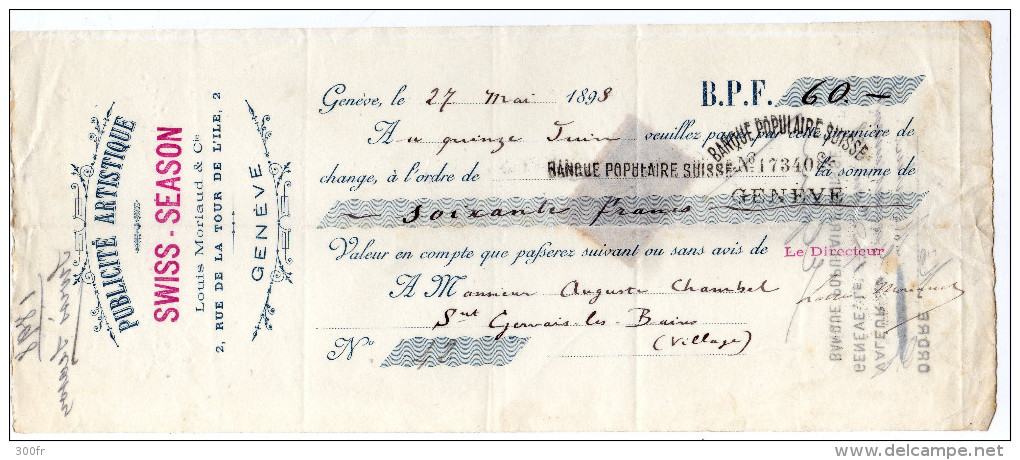 PUBLICITÉ ARTISTIQUE
SWISS-SEASON
Louis Morlaud & Cie
2, RUE DE LA TOUR DE L'ILE, 2
GENÈVE
Genève, le 27 Mai 1898 B.P.F. 60.-
Au quinze Juin veuillez payer sur cette première de
change, à l'ordre de BANQUE POPULAIRE SUISSE la somme de
BANQUE POPULAIRE SUISSE
No 17340
GENÈVE
soixante francs
Valeur en compte que passerez suivant ou sans avis de Le Directeur
A Monsieur Auguste Chambel
St Gervais-les-Bains
(Village)
No
BANQUE POPULAIRE
GENÈVE, LE
VALEUR
ORDRE
300fr
www.delcampe.net